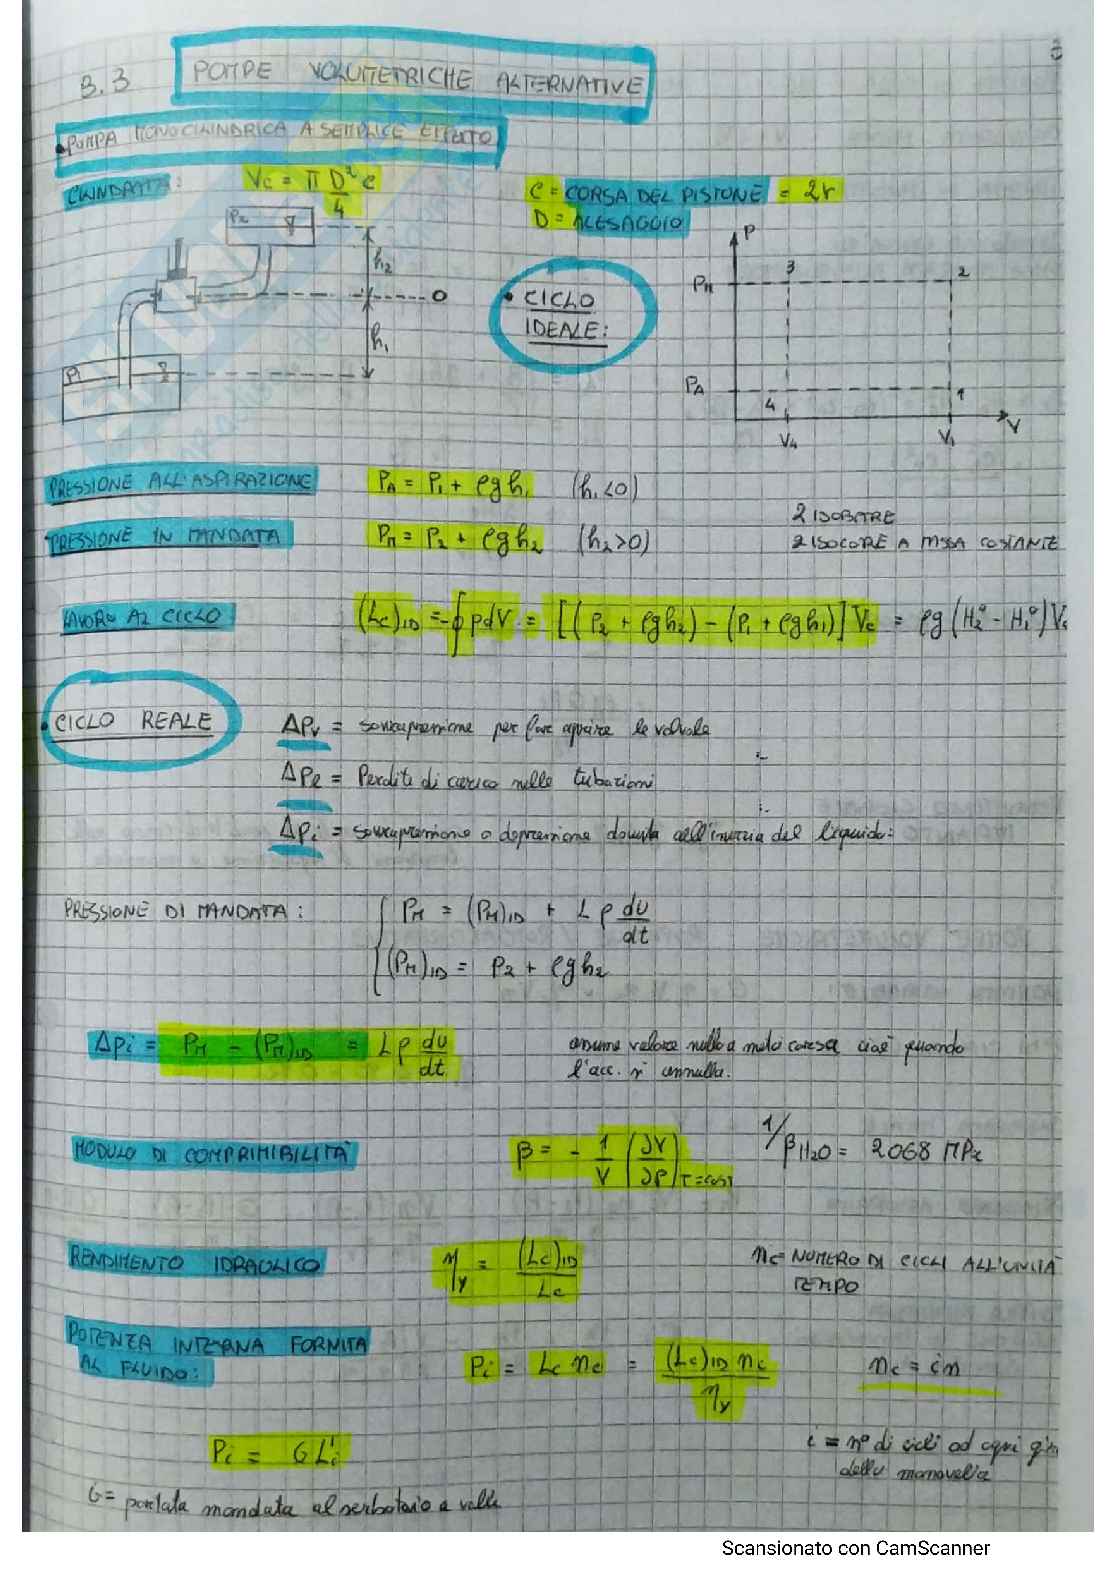 3.3 POMPE VOLUMETRICHE ALTERNATIVE
• POMPA MONOCILINDRICA A SEMPLICE EFFETTO
CILINDRATA: Vc = π D²/4 c
C = CORSA DEL PISTONE = 2r
D = ALESAGGIO
P2
h2
0
h1
P1
• CICLO IDEALE:
P
PM
3
2
PA
4
1
V4
V1
V
PRESSIONE ALL'ASPIRAZIONE PA = P1 + ρgh1 (h1<0)
2 ISOBARE
PRESSIONE IN MANDATA PM = P2 + ρgh2 (h2>0)
2 ISOCORE A MASSA COSTANTE
LAVORO AL CICLO (Lc)ID = -∮pdV = [(P2 + ρgh2) - (P1 + ρgh1)] Vc = ρg(H2° - H1°)Vc
• CICLO REALE
ΔPv = sovrapressione per fare aprire le valvole
ΔPe = Perdite di carico nelle tubazioni
ΔPi = sovrapressione o depressione dovuta all'inerzia del liquido:
PRESSIONE DI MANDATA: PM = (PM)ID + Lρ du/dt
(PM)ID = P2 + ρgh2
Δpi = PM - (PM)ID = Lρ du/dt
assume valore nullo a metà corsa cioè quando
l'acc. si annulla.
MODULO DI COMPRIMIBILITÀ β = - 1/V (∂V/∂P)T=cost 1/βH2O = 2068 MPa
RENDIMENTO IDRAULICO ηy = (Lc)ID/Lc
nc = NUMERO DI CICLI ALL'UNITÀ
TEMPO
POTENZA INTERNA FORNITA
AL FLUIDO: Pi = Lc nc = (Lc)ID nc/ηy nc = in
Pi = G L'i
i = n° di cicli ad ogni giro
della manovella
G = portata mandata al serbatoio a valle
Scansionato con CamScanner